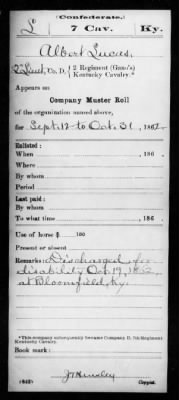 (Confederate.)
L 7 Cav. Ky.
Albert Lucas,
2 Lieut, Co. D, 2 Regiment (Gano's)
Kentucky Cavalry.*
Appears on
Company Muster Roll
of the organization named above,
for Sept. 12 to Oct. 31, 1862.
Enlisted:
When , 186 .
Where
By whom
Period
Last paid:
By whom
To what time , 186 .
Use of horse $ 100
Present or absent
Remarks: Discharged for
disability Oct. 19, 1862,
at Bloomfield, Ky.
*This company subsequently became Company D, 7th Regiment
Kentucky Cavalry.
Book mark:
(642)
Copyist.